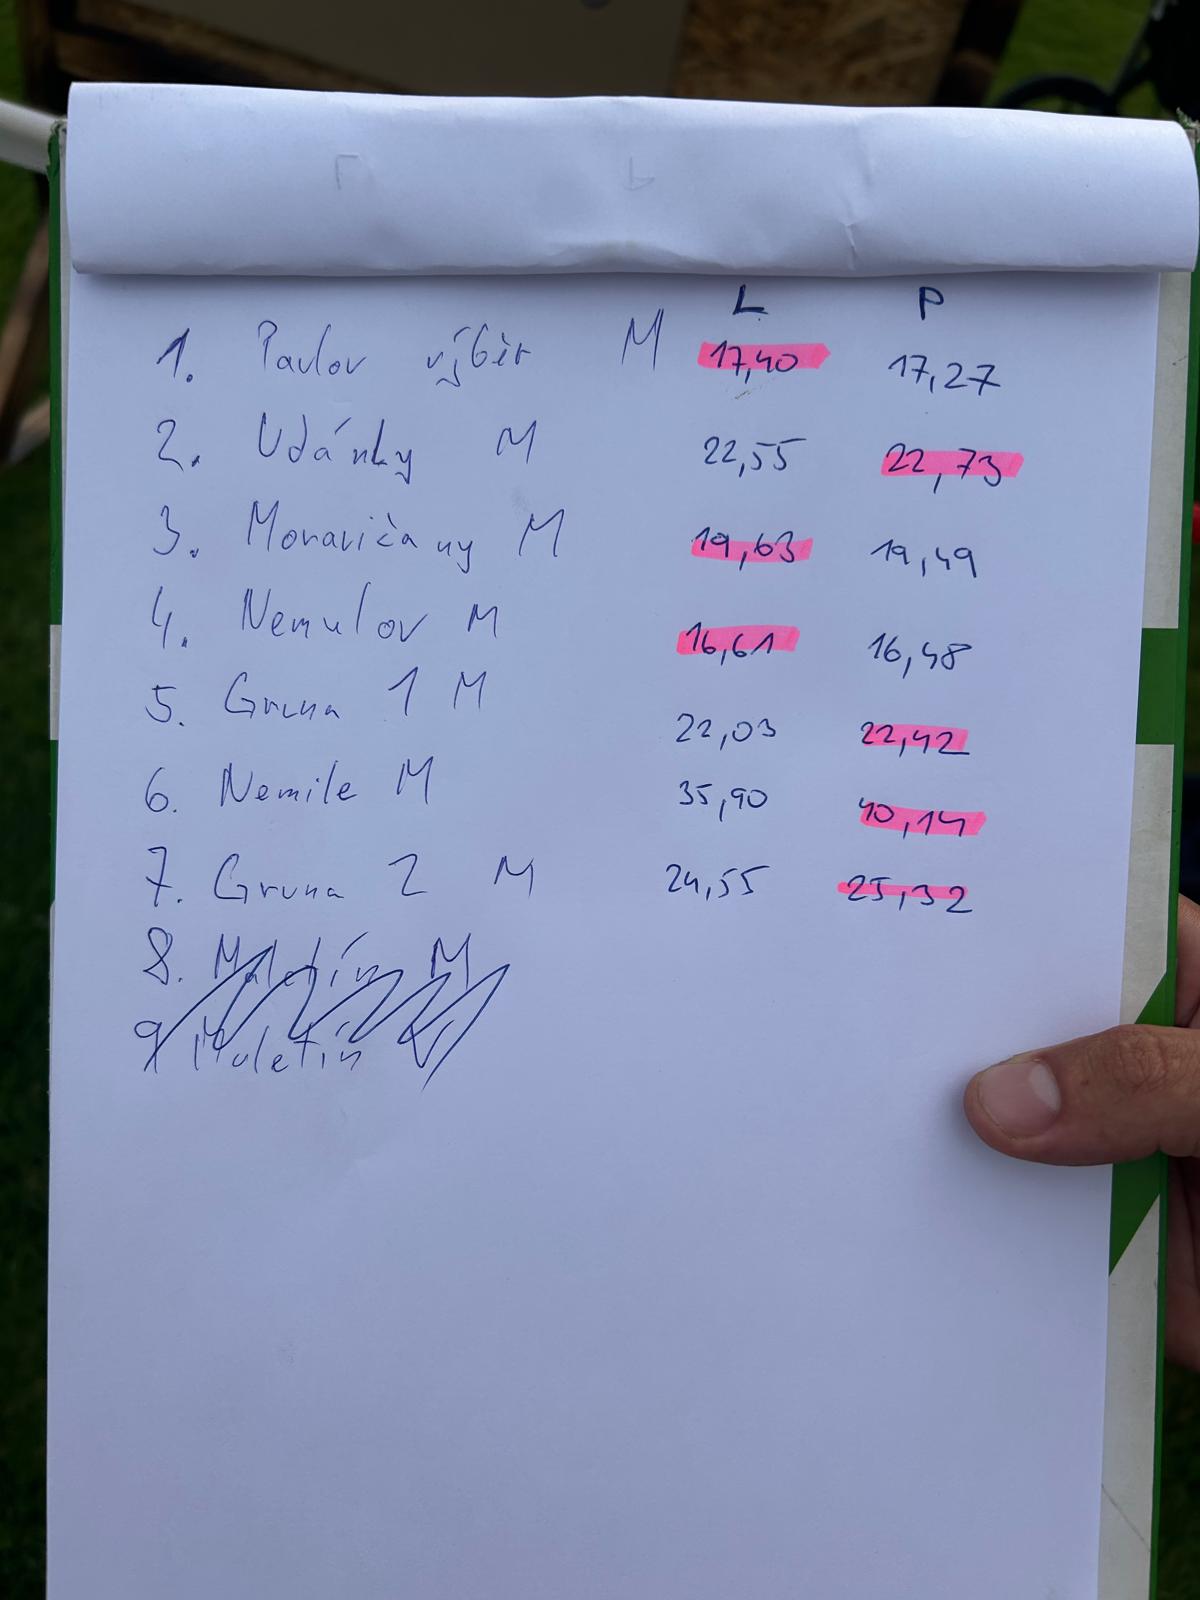 L P
1. Pavlov výběr M 17,40 17,27
2. Udánky M 22,55 22,73
3. Moravičany M 19,63 19,49
4. Nemulov M 16,61 16,48
5. Gruna 1 M 22,03 22,42
6. Nemile M 35,90 40,14
7. Gruna 2 M 24,55 25,32
8. Maletín M
9 Maletín